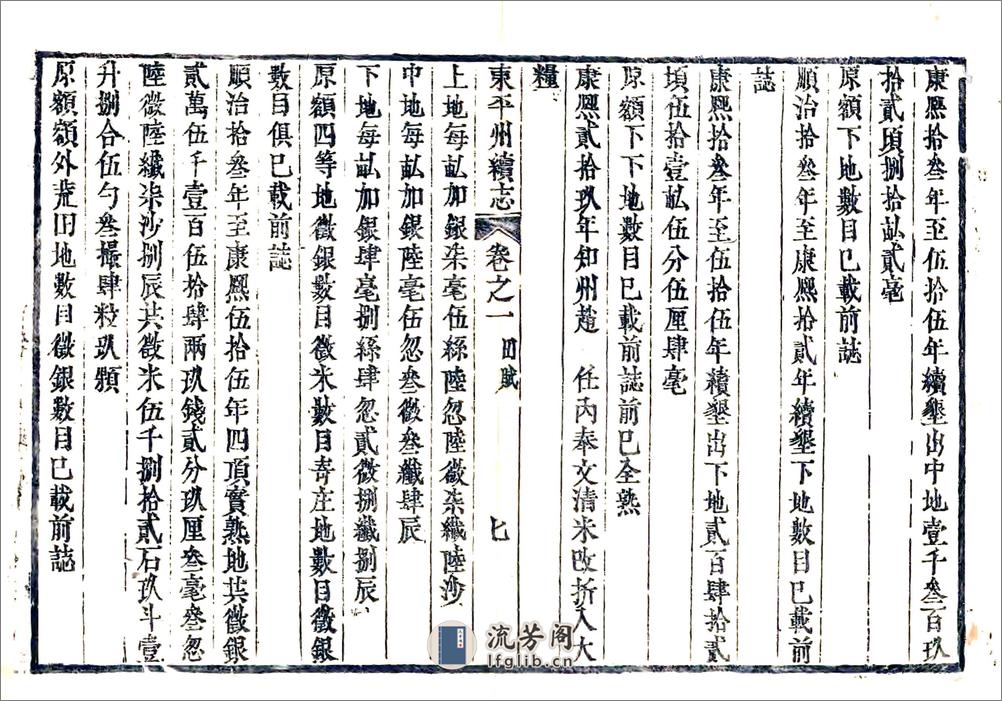 康熙拾叁年至伍拾伍年續墾出中地壹千叁百玖
拾貳頃捌拾畝貳毫
原額下地數目已載前誌
順治拾叁年至康熙拾貳年續墾下地數目已載前
誌
康熙拾叁年至伍拾伍年續墾出下地貳百肆拾貳
頃伍拾壹畝伍分伍厘肆毫
原額下下地數目已載前誌前已全熟
康熙貳拾玖年知州趙 任內奉文清米改折入大
糧
東平州續志 卷之一 田賦 七
上地每畝加銀柒毫伍絲陸忽陸微柒纖陸沙
中地每畝加銀陸毫伍忽叁微叁纖肆辰
下地每畝加銀肆毫捌絲肆忽貳微捌纖捌辰
原額四等地徵銀數目徵米數目寄庄地數目徵銀
數目俱已載前誌
順治拾叁年至康熙伍拾伍年四項實熟地共徵銀
貳萬伍千壹百伍拾肆兩玖錢貳分玖厘叁毫叁忽
陸微陸纖柒沙捌辰共徵米伍千捌拾貳石玖斗壹
升捌合伍勺叁撮肆粒玖顆
原額額外荒田地數目徵銀數目已載前誌
流芳阁
lfglib.cn